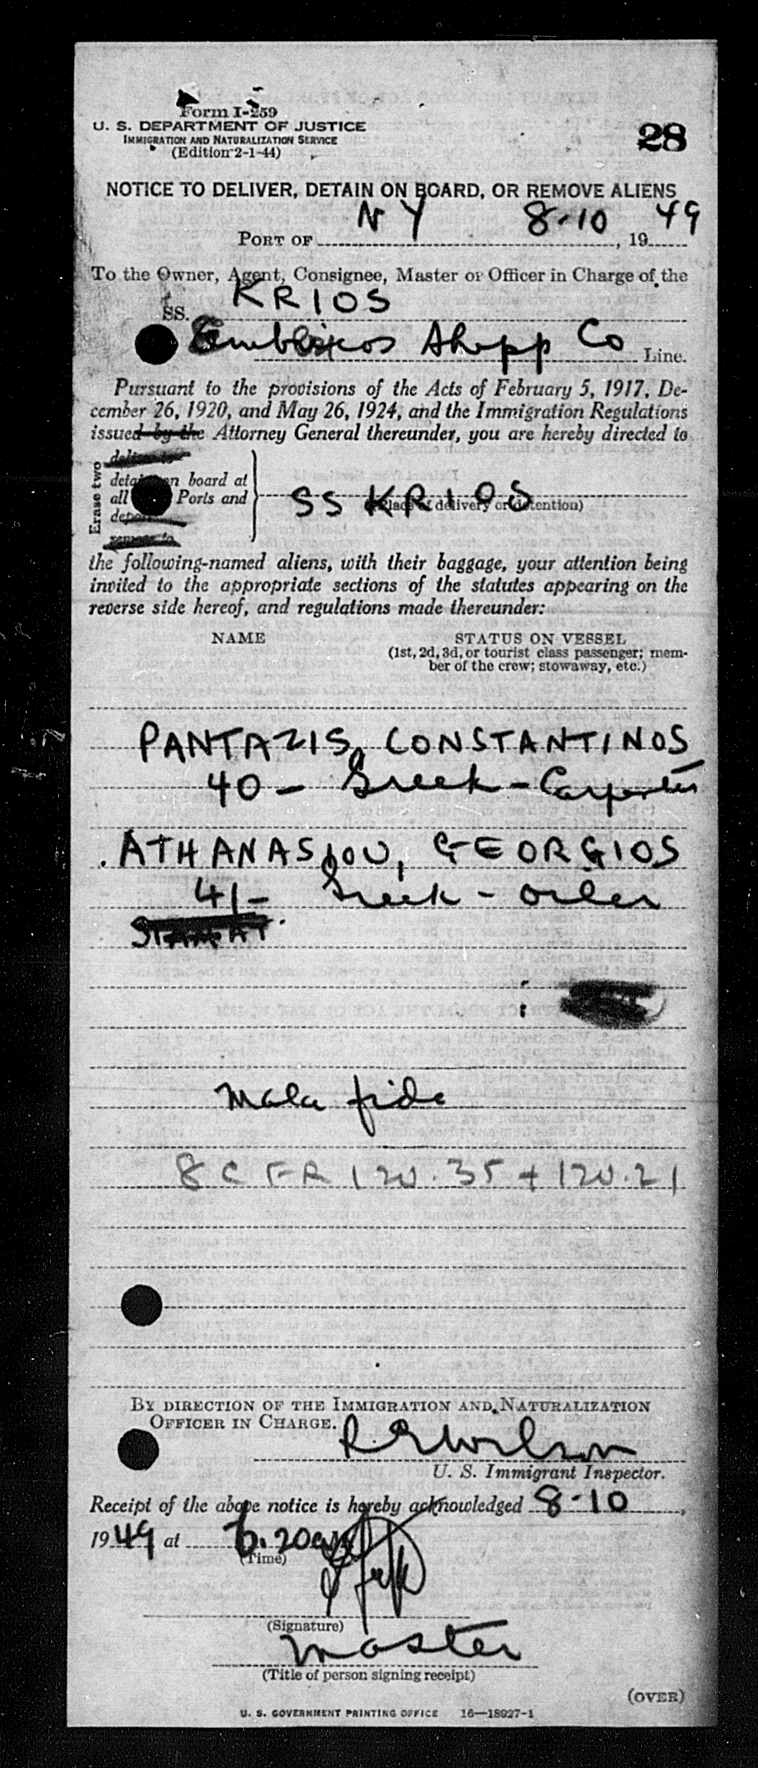 Form I-259
U. S. DEPARTMENT OF JUSTICE
IMMIGRATION AND NATURALIZATION SERVICE
(Edition 2-1-44)
28
NOTICE TO DELIVER, DETAIN ON BOARD, OR REMOVE ALIENS
PORT OF N Y 8-10, 1949
To the Owner, Agent, Consignee, Master or Officer in Charge of the
SS. KRIOS
Shipp Co Line.
Pursuant to the provisions of the Acts of February 5, 1917, De-
cember 26, 1920, and May 26, 1924, and the Immigration Regulations
issued by the Attorney General thereunder, you are hereby directed to
Erase two
deliver to
detain on board at
all Ports and
SS KRIOS
(Place of delivery or detention)
remove to
the following-named aliens, with their baggage, your attention being
invited to the appropriate sections of the statutes appearing on the
reverse side hereof, and regulations made thereunder:
NAME STATUS ON VESSEL
(1st, 2d, 3d, or tourist class passenger; mem-
ber of the crew; stowaway, etc.)
PANTAZIS, CONSTANTINOS
40 - Greek - Carpenter
ATHANASIOU, GEORGIOS
41 - Greek - oiler
mala fide
8 CFR 120.35 + 120.21
BY DIRECTION OF THE IMMIGRATION AND NATURALIZATION
OFFICER IN CHARGE.
R Wilson
U. S. Immigrant Inspector.
Receipt of the above notice is hereby acknowledged 8-10,
1949 at 6.20
(Time)
(Signature)
master
(Title of person signing receipt)
(OVER)
U. S. GOVERNMENT PRINTING OFFICE 16—18927-1